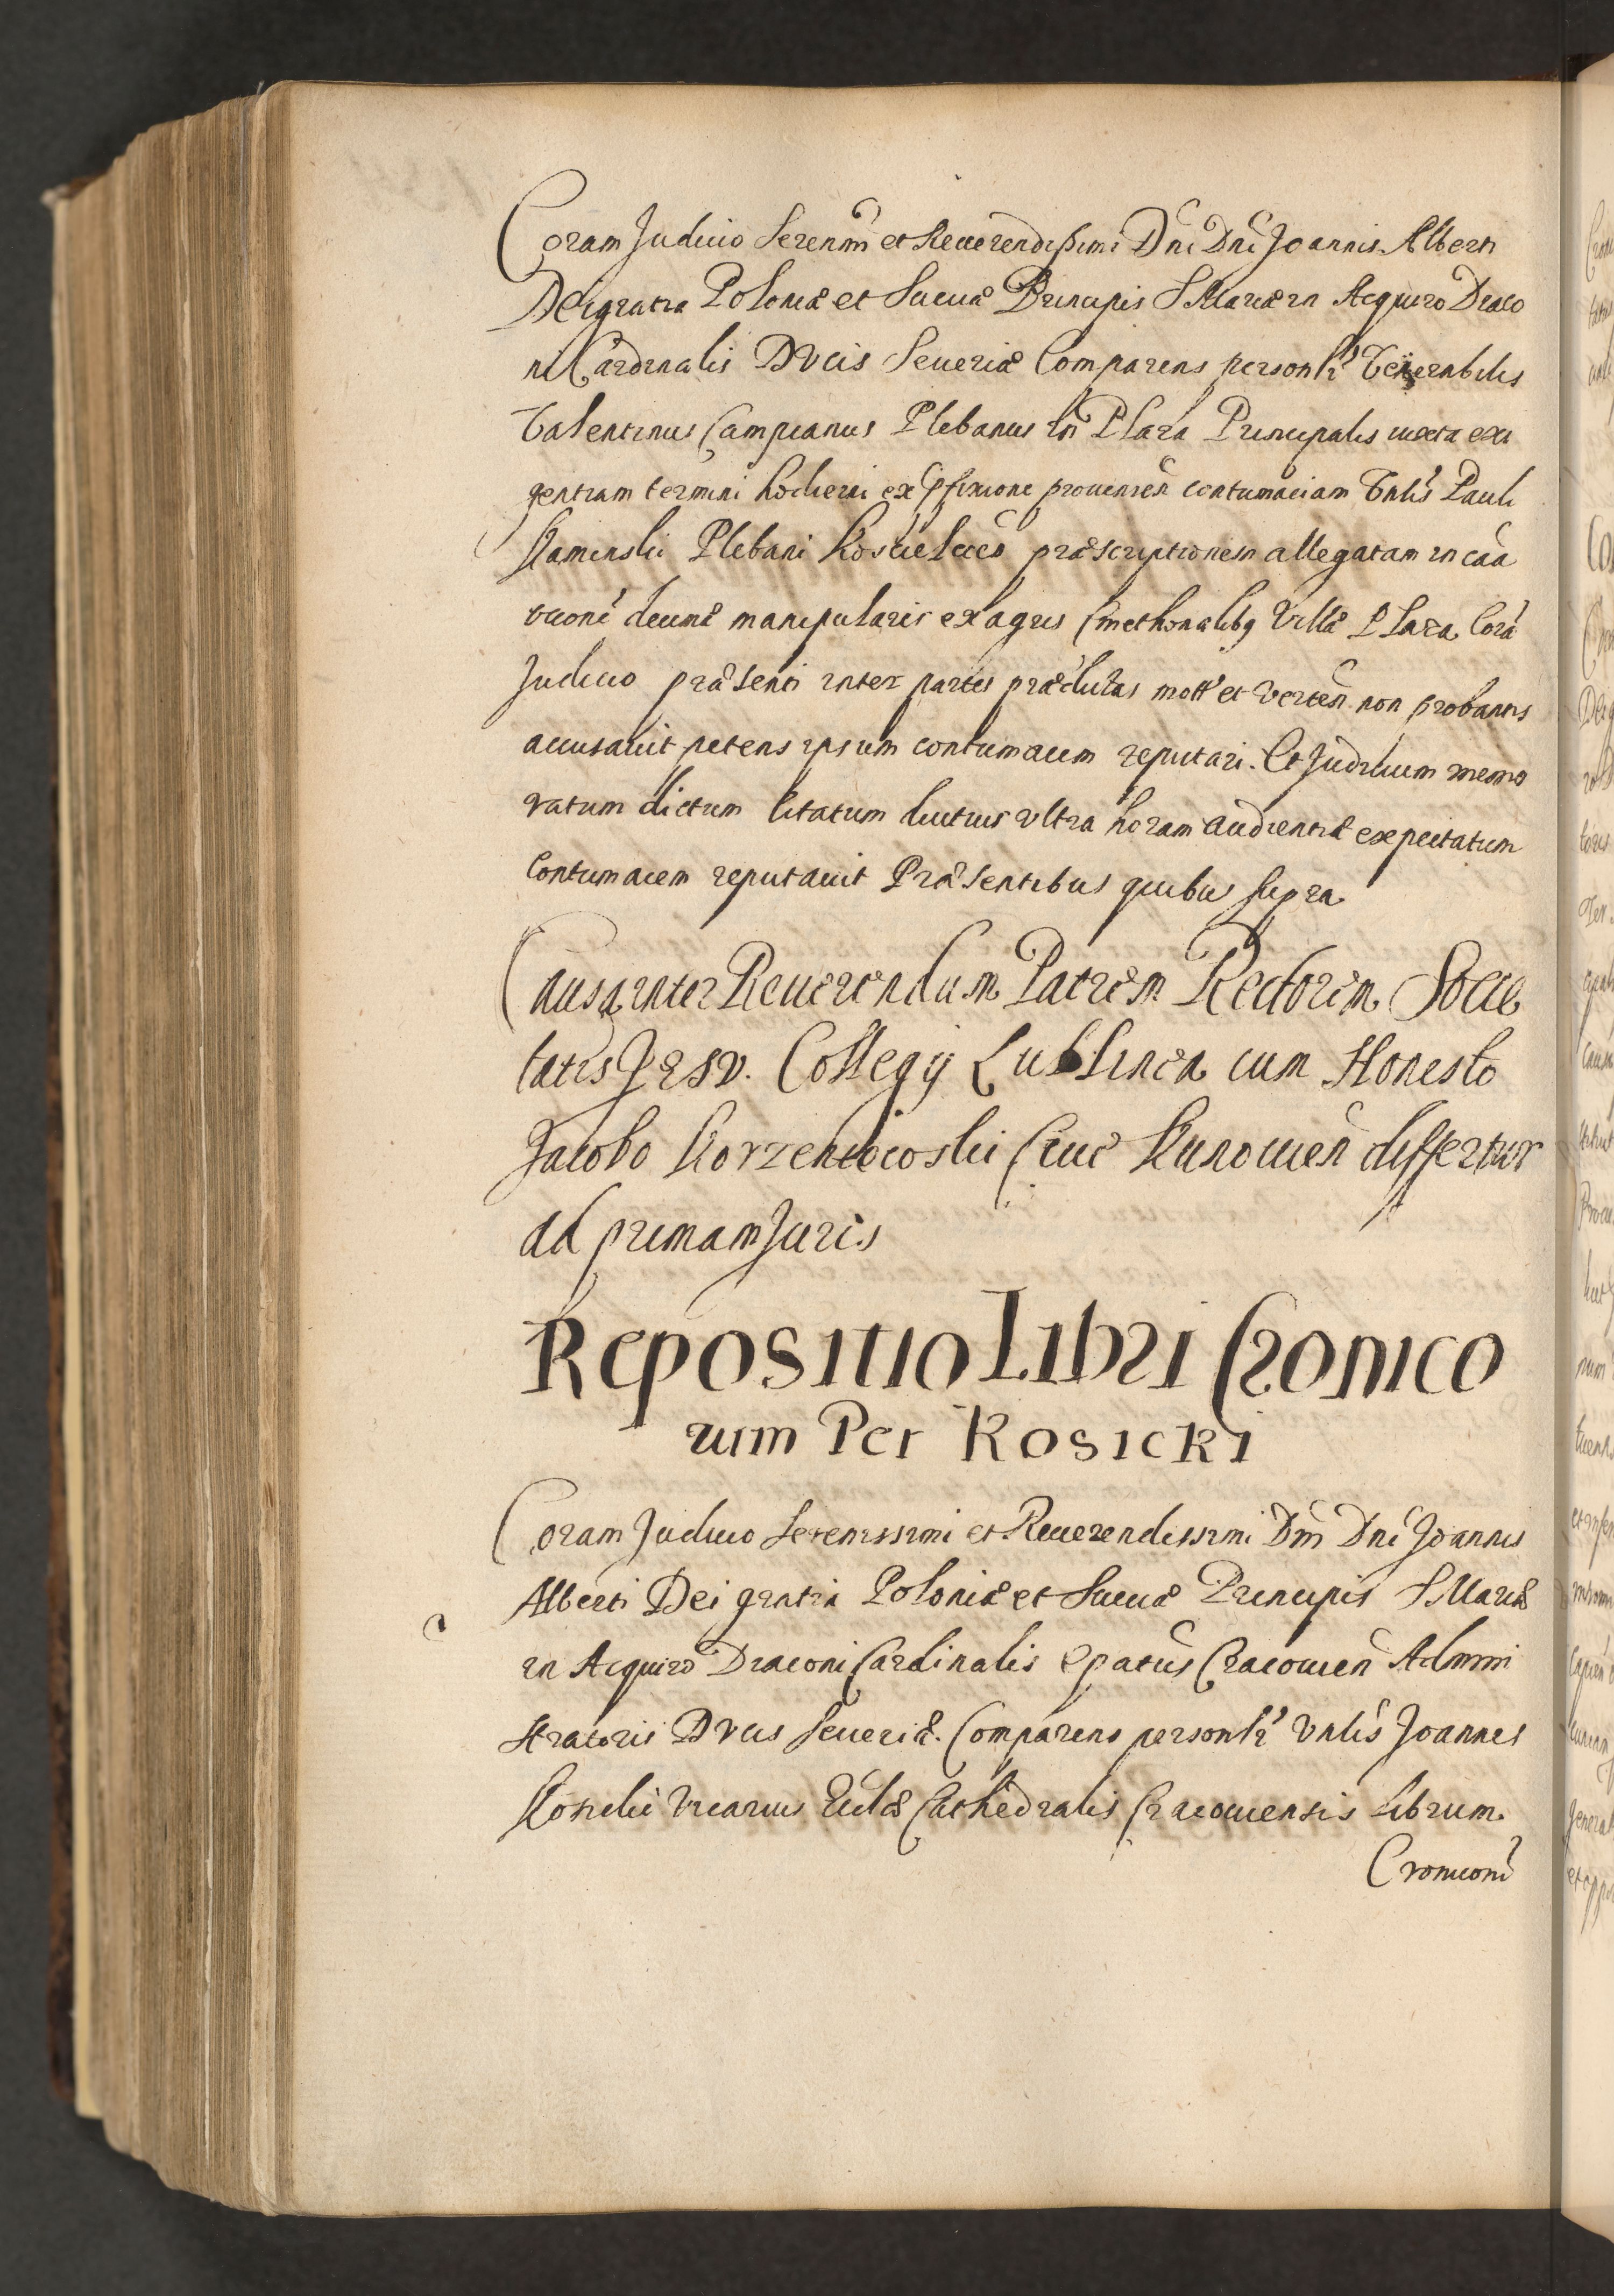 Coram Judicio Serenmi et Reuerendissimi Dni Dni Joannis Alberti
Dei gratia Poloniæ et Sueciæ Principis S Mariæ in Acquiro Draco
ni Cardinalis Ducis Seueriæ Comparens personlr Venerabilis
Valentinus Campianus Plebanus in Plaza Principalis iuxta exi
gentiam termini hodierni ex pfixione prouenien contumaciam Vnlis Pauli
Kaminski Plebani Koscielecen præscriptionem allegatam in caa
tioni decimæ manipularis ex agris Cmethonalibq Villæ Plaza Cora
Judicio præsenti inter partes prædictas mott et verten non probantis
accusauit petens ipsum contumacem reputari. Et Judicium memo
ratum dictum citatum diutius vltra horam audientiæ expectatum
Contumacem reputauit Præsentibus quibus supra
Causa inter Reuerendum Patrem Rectorem Socie
tatis Jesv. Collegij Lublinen cum Honesto
Jacobo Korzeniowski Ciue Kunowien differtur
ad primam Juris
Repositio Libri Cronico
rum Per Kosicki
Coram Judicio Serenissimi et Reuerendissimi Dni Dni Joannis
Alberti Dei gratia Poloniæ et Sueciæ Principis S Mariæ
in Acquiro Draconi Cardinalis Epatus Cracouien Admini
stratoris Ducis Seueriæ. Comparens personlr Vnlis Joannes
Kosicki Vicarius Eccliæ Cathedralis Cracouiensis Librum
Cronicoru